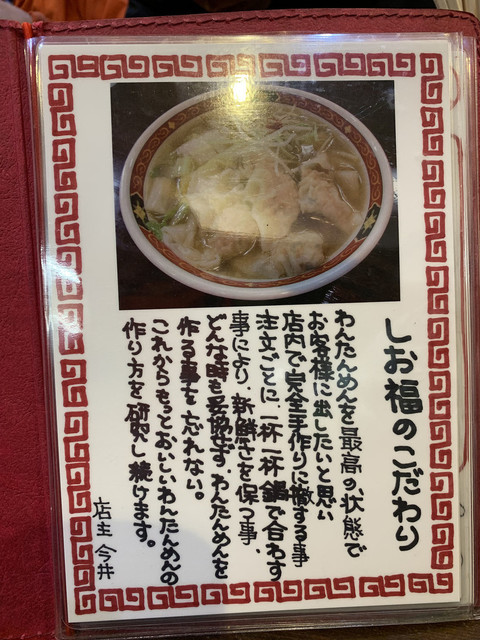 しお福のこだわり
わんたんめんを最高の状態で
お客様に出したいと思い
店内で完全手作りに徹する事
注文ごとに一杯一杯鍋で合わす
事により、新鮮さを保つ事、
どんな時も妥協せず、わんたんめんを
作る事を忘れない。
これからもっとおいしいわんたんめんの
作り方を研究し続けます。
店主 今井